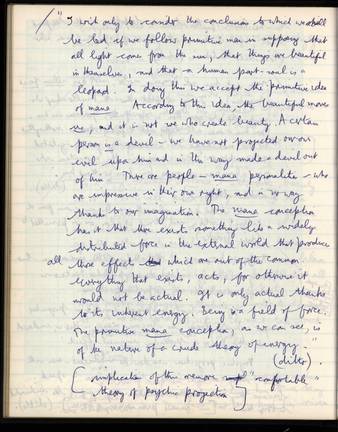 "I wish only to consider the conclusions to which we shall
be led if we follow primitive man in supposing that
all light comes from the sun, that things are beautiful
in themselves, and that a human part-soul is a
leopard. In doing this we accept the primitive idea
of mana. According to this idea, the beautiful moves
us, and it is not we who create beauty. A certain
person is a devil – we have not projected our own
evil upon him and in this way made a devil out
of him. There are people – mana personalities – who
are impressive in their own right, and in no way
thanks to our imagination. The mana conception
has it that there exists something like a widely
distributed force in the external world that produces
all those effects which are out of the common.
Everything that exists, acts, for otherwise it
would not be actual. It is only actual thanks
to its inherent energy. Being is a field of force.
The primitive mana conception, as we can see, is
of the nature of a crude theory of energy."
(ditto).
[implication of the "comfortable"
theory of psychic projection]